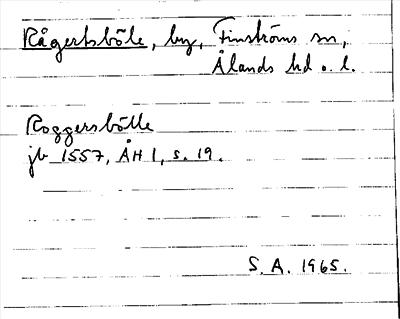 Rågertsböle, by, Finströms sn,
Ålands hd o. l.
Roggersbölle
jb 1557, ÅH 1, s. 19.
S. A. 1965.